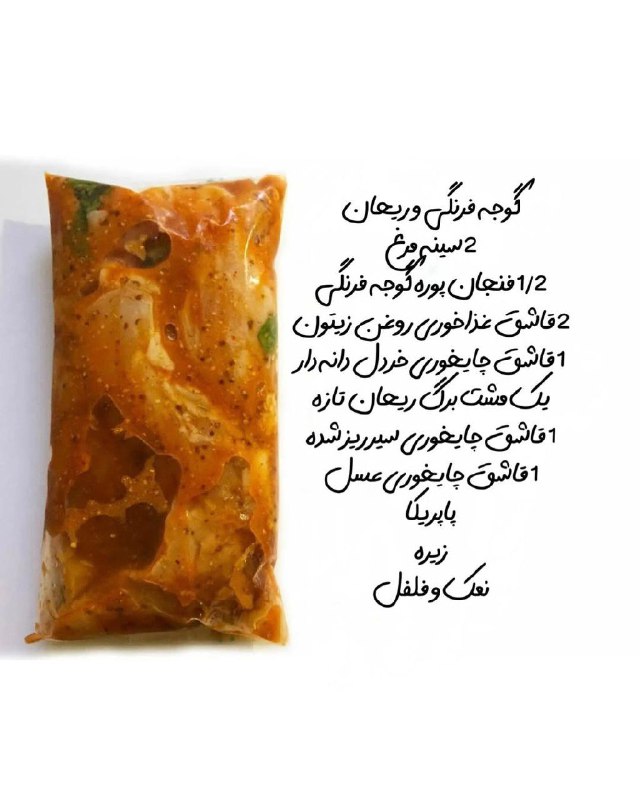 گوجه فرنگی و ریحان
2 سینه مرغ
1/2 فنجان پوره گوجه فرنگی
2 قاشق غذاخوری روغن زیتون
1 قاشق چایخوری خردل دانه دار
یک مشت برگ ریحان تازه
1 قاشق چایخوری سیر ریز شده
1 قاشق چایخوری عسل
پاپریکا
زیره
نمک و فلفل